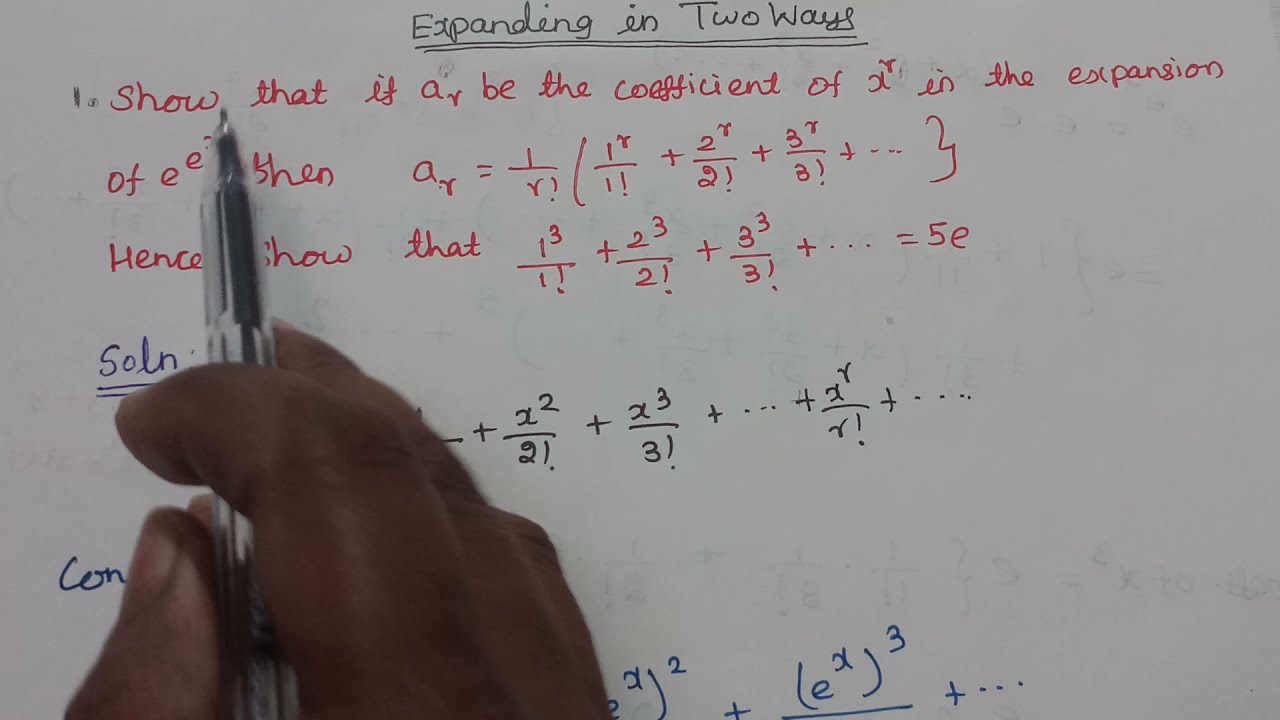 Expanding in Two Ways
1. Show that if aᵣ be the coefficient of xʳ in the expansion
of e^e then aᵣ = 1/r! ( 1ʳ/1! + 2ʳ/2! + 3ʳ/3! + ... }
Hence show that 1³/1! + 2³/2! + 3³/3! + ... = 5e
Soln:
+ x²/2! + x³/3! + ... + xʳ/r! + ....
Con
eˣ)² + (eˣ)³ + ...